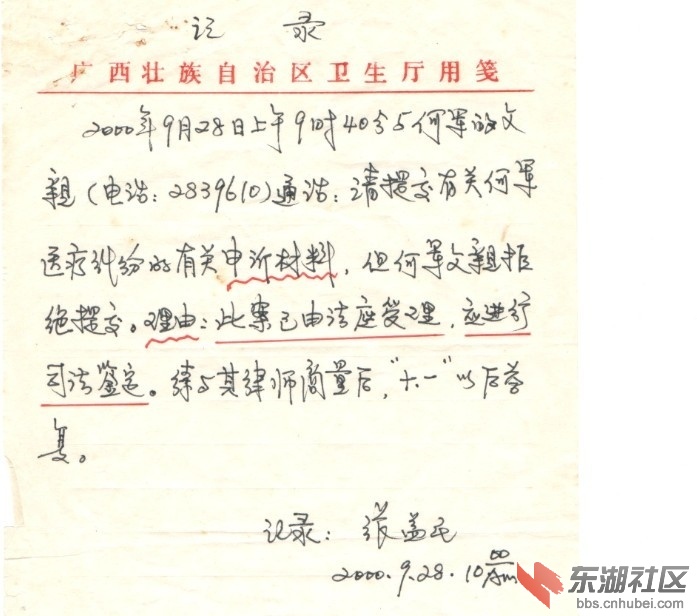 记 录
广西壮族自治区卫生厅用笺
2000年9月28日上午9时40分与何军的父
亲(电话:2839610)通话:请提交有关何军
医疗纠纷的有关申诉材料,但何军父亲拒
绝提交。理由:此案已由法庭受理,应进行
司法鉴定。待与其律师商量后,"十一"以后答
复。
记录: 张益民
2000.9.28.10 00 Am
东湖社区
bbs.cnhubei.com